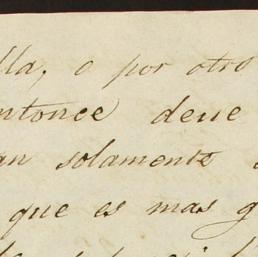 lla, o por otro
ntonce deue
an solamente
que es mas g